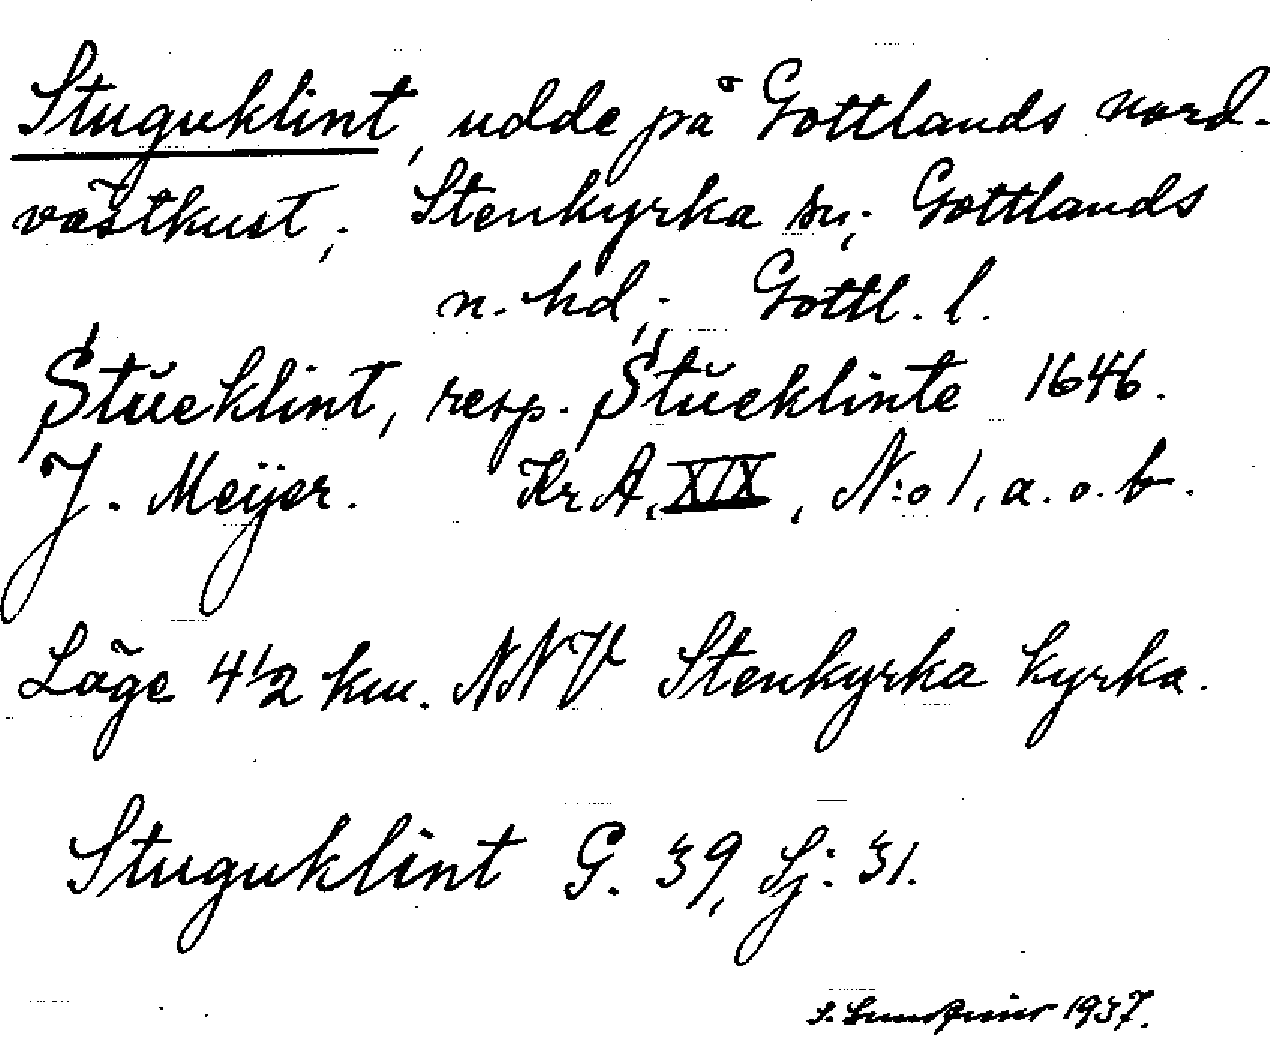 Stuguklint, udde på Gottlands nord-
västkust; Stenkyrka sn; Gottlands
n. hd; Gottl. l.
Stücklint, resp. Stücklinte 1646.
J. Meijer. Kr A, XIX, N:o 1, a. o. b.
Läge 4 1/2 km. NNV Stenkyrka kyrka.
Stuguklint G. 39, Sj: 31.
1937.